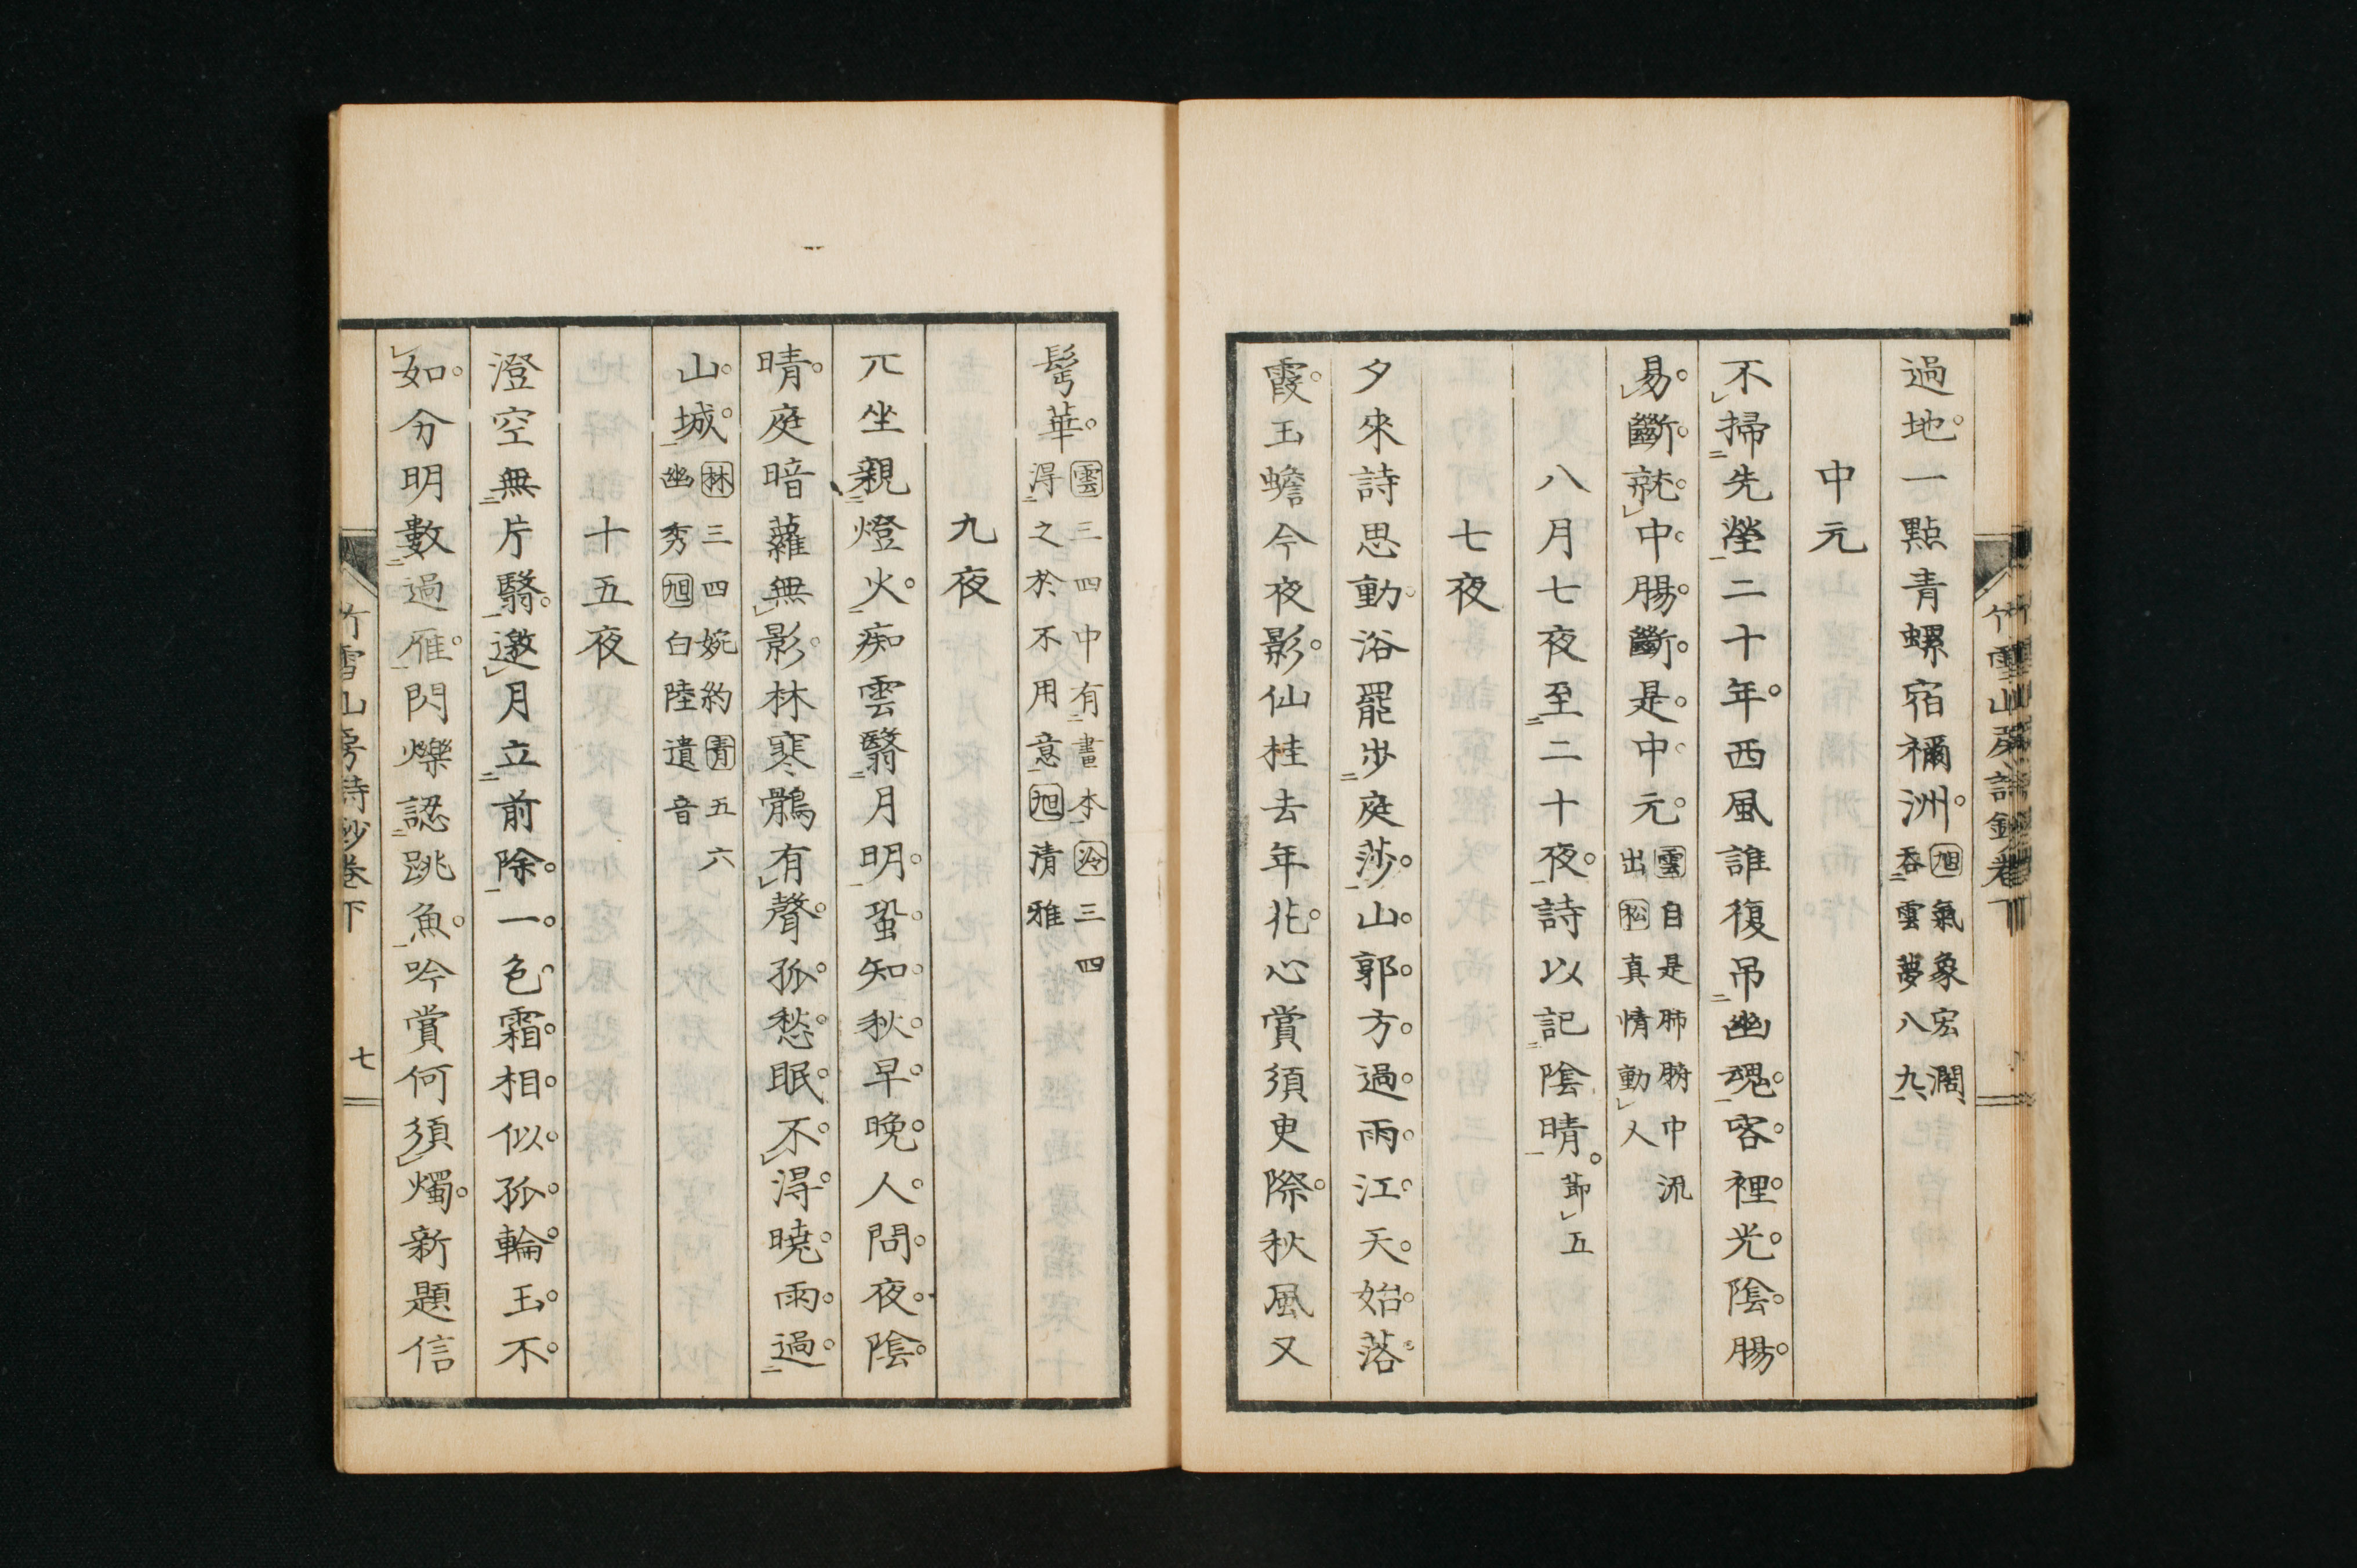 竹雪山房詩鈔卷下
過地。一點青螺宿禰洲。
旭氣象宏濶
呑雲夢八九
中元
不掃先塋二十年。西風誰復吊幽魂。客。裡。光。陰。腸。
易。斷。就。中。腸。斷。是。中。元。
雲自是肺腑中流
出松真情動人
八月七夜至二十夜。詩以記陰晴。節五
七夜
夕來詩思動。浴罷步庭莎。山。郭。方。過。雨。江。天。始。落。
霞。玉蟾今夜影。仙桂去年花。心賞須更際。秋風又
鬂華。
雲三四中有畫本冷三四
得之於不用意旭清雅
九夜
兀坐親燈火。痴雲翳月明。蛩。知。秋。早。晚。人。問。夜。陰。
晴。庭暗蘿無影。林寒鶻有聲。孤。愁。眠。不。得。曉。雨。過。
山。城。
林三四婉約青五六
幽秀旭白陸遺音
十五夜
澄空無片翳。邀月立前除。一。色。霜。相。似。孤。輪。玉。不。
如。分明數過雁。閃爍認跳魚。吟賞何須燭。新題信
竹雪山房詩鈔卷下
七